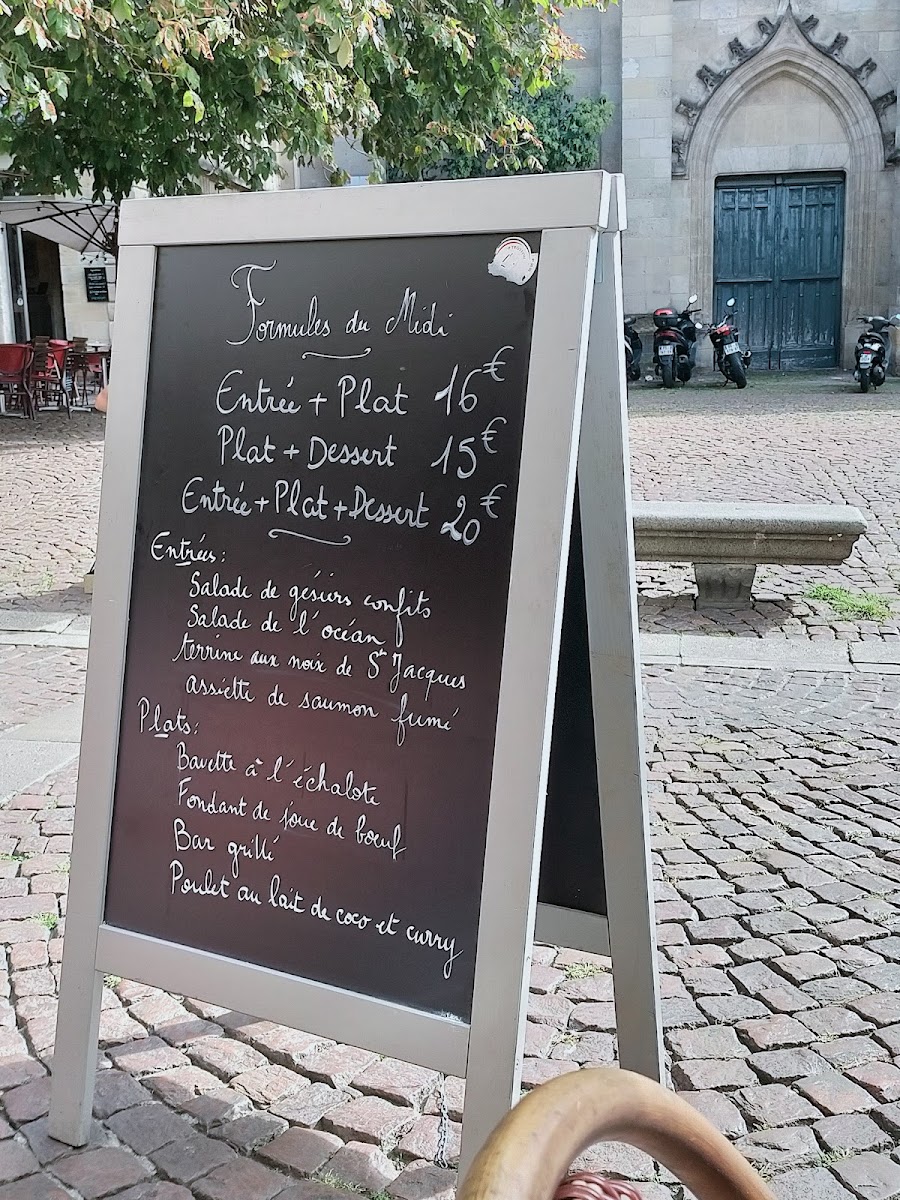 Formules du Midi
Entrée + Plat 16€
Plat + Dessert 15€
Entrée + Plat + Dessert 20€
Entrées:
Salade de gésiers confits
Salade de l'océan
terrine aux noix de St Jacques
assiette de saumon fumé
Plats:
Bavette à l'échalote
Fondant de joue de bœuf
Bar grillé
Poulet au lait de coco et curry